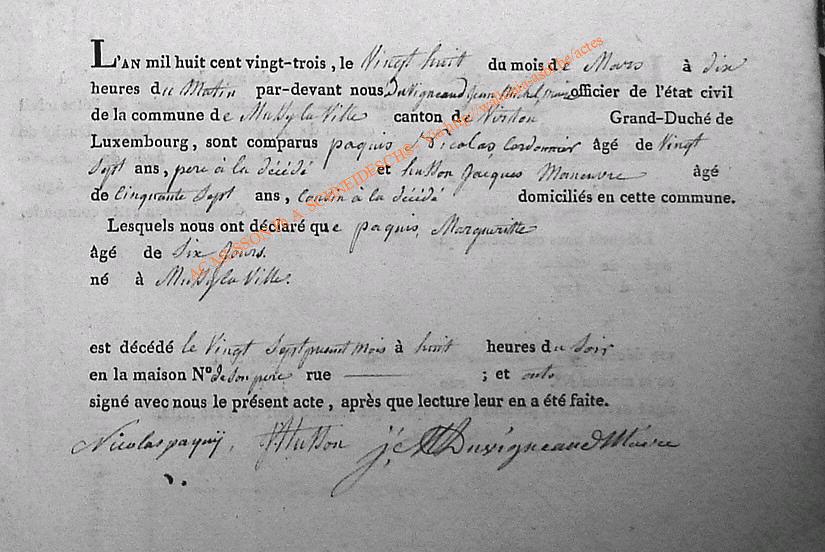 L'AN mil huit cent vingt-trois, le Vingt huit du mois de Mars à dix
heures du Matin par-devant nous Duvigneaud jean Michel maire officier de l'état civil
de la commune de Mussy la Ville canton de Virton Grand-Duché de
Luxembourg, sont comparus paquis Nicolas Cordonnier âgé de Vingt
Sept ans, pere a la décédé et husson Jacques Maneuvre âgé
de Cinquante Sept ans, Cousin a la décédé domiciliés en cette commune.
Lesquels nous ont déclaré que paquis, Margueritte
âgé de Six Jours.
né à Mussy la Ville.
est décédé le Vingt Sept present mois à huit heures du Soir
en la maison N° de Son pere rue ; et onts
signé avec nous le présent acte, après que lecture leur en a été faite.
Nicolas paquis, J Husson j, M Duvigneaud Maire
ACASSSONNE A SCHNEIDESCHS - Via http://wallonia.asso.be/actes